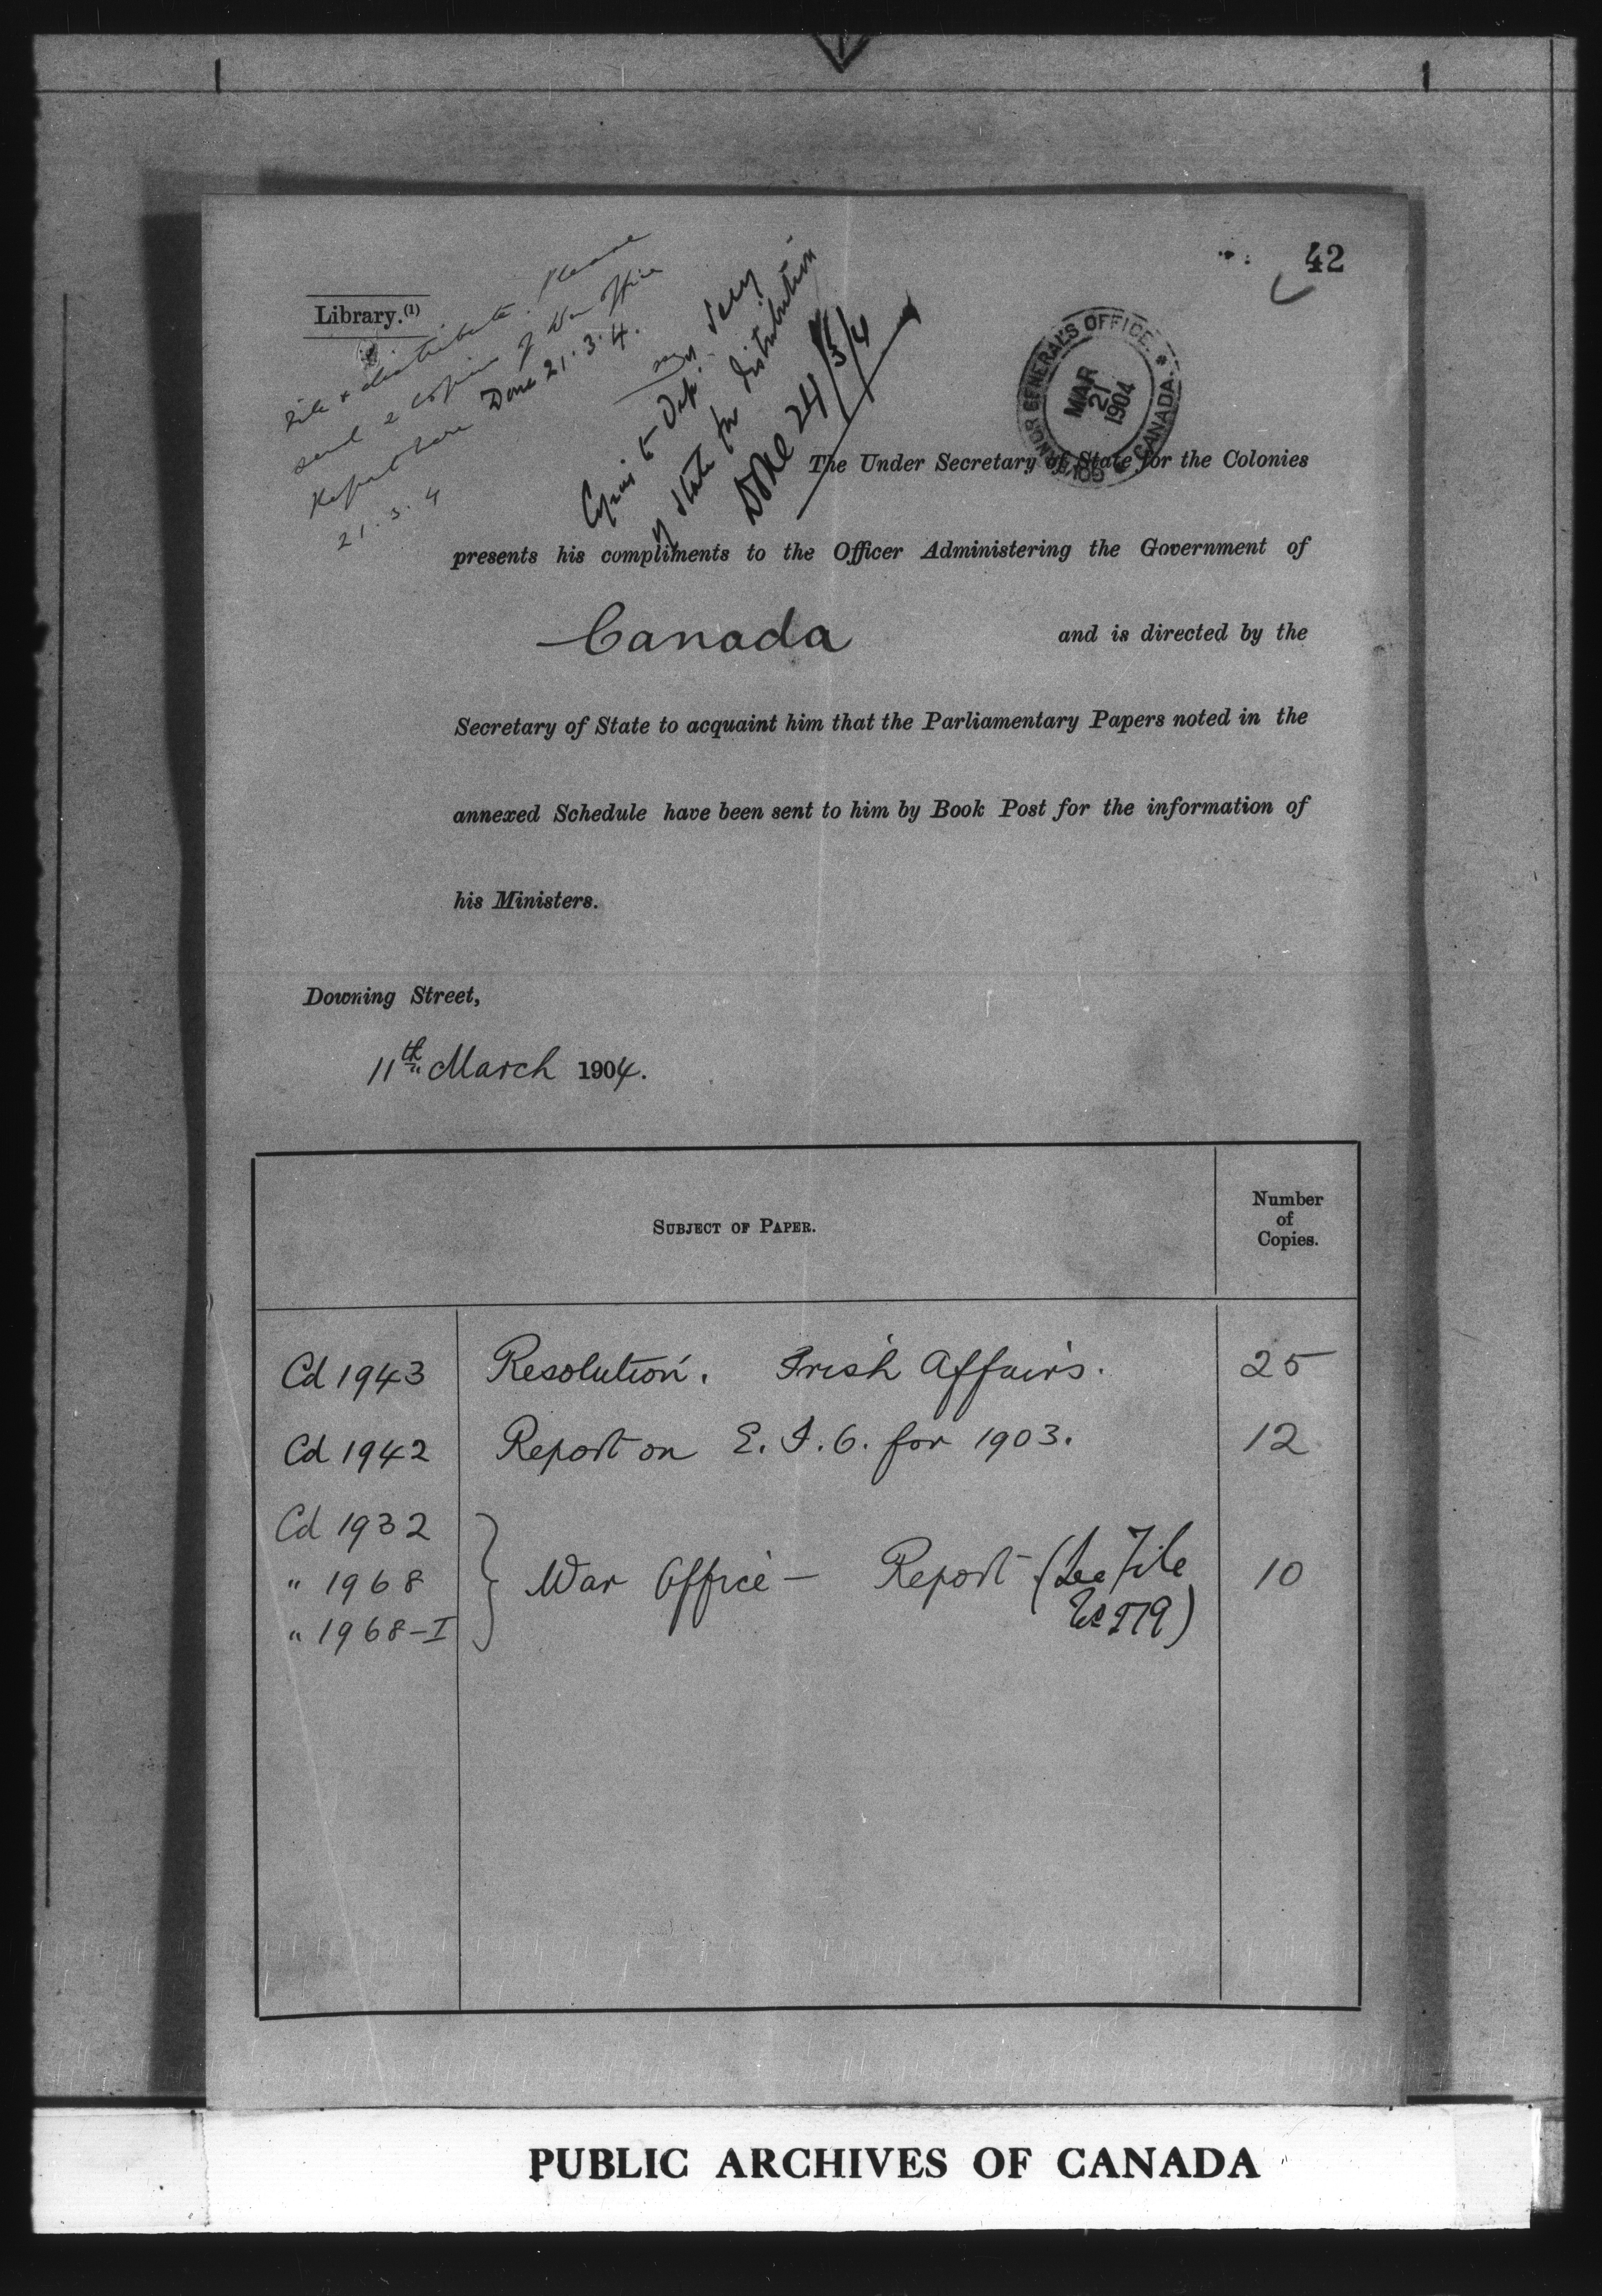 42
Library.(1)
File & distribute. Please
send 2 copies of War Office
Report here Done 21.3.4.
21.3.4
Copies to Dep. Secy
of State for distribution
Done 24/3/4
GOVERNOR GENERAL'S OFFICE * CANADA *
MAR
21
1904
The Under Secretary of State for the Colonies
presents his compliments to the Officer Administering the Government of
Canada and is directed by the
Secretary of State to acquaint him that the Parliamentary Papers noted in the
annexed Schedule have been sent to him by Book Post for the information of
his Ministers.
Downing Street,
11th March 1904.
SUBJECT OF PAPER. Number of Copies.
Cd 1943 Resolution. Irish Affairs. 25
Cd 1942 Report on E.I.O. for 1903. 12
Cd 1932
" 1968 War Office — Report (See File 10
" 1968-I
PUBLIC ARCHIVES OF CANADA